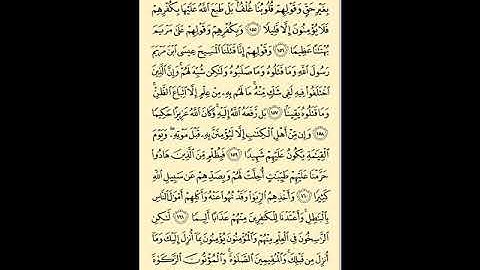 بِغَيْرِ حَقٍّ وَقَوْلِهِمْ قُلُوبُنَا غُلْفٌ بَلْ طَبَعَ اللَّهُ عَلَيْهَا بِكُفْرِهِمْ
فَلَا يُؤْمِنُونَ إِلَّا قَلِيلًا ١٥٥ وَبِكُفْرِهِمْ وَقَوْلِهِمْ عَلَىٰ مَرْيَمَ
بُهْتَانًا عَظِيمًا ١٥٦ وَقَوْلِهِمْ إِنَّا قَتَلْنَا الْمَسِيحَ عِيسَى ابْنَ مَرْيَمَ
رَسُولَ اللَّهِ وَمَا قَتَلُوهُ وَمَا صَلَبُوهُ وَلَٰكِن شُبِّهَ لَهُمْ وَإِنَّ الَّذِينَ
اخْتَلَفُوا فِيهِ لَفِي شَكٍّ مِّنْهُ مَا لَهُم بِهِ مِنْ عِلْمٍ إِلَّا اتِّبَاعَ الظَّنِّ
وَمَا قَتَلُوهُ يَقِينًا ١٥٧ بَل رَّفَعَهُ اللَّهُ إِلَيْهِ وَكَانَ اللَّهُ عَزِيزًا حَكِيمًا
١٥٨ وَإِن مِّنْ أَهْلِ الْكِتَابِ إِلَّا لَيُؤْمِنَنَّ بِهِ قَبْلَ مَوْتِهِ وَيَوْمَ
الْقِيَامَةِ يَكُونُ عَلَيْهِمْ شَهِيدًا ١٥٩ فَبِظُلْمٍ مِّنَ الَّذِينَ هَادُوا
حَرَّمْنَا عَلَيْهِمْ طَيِّبَاتٍ أُحِلَّتْ لَهُمْ وَبِصَدِّهِمْ عَن سَبِيلِ اللَّهِ
كَثِيرًا ١٦٠ وَأَخْذِهِمُ الرِّبَوٰا وَقَدْ نُهُوا عَنْهُ وَأَكْلِهِمْ أَمْوَالَ النَّاسِ
بِالْبَاطِلِ وَأَعْتَدْنَا لِلْكَافِرِينَ مِنْهُمْ عَذَابًا أَلِيمًا ١٦١ لَّٰكِنِ
الرَّاسِخُونَ فِي الْعِلْمِ مِنْهُمْ وَالْمُؤْمِنُونَ يُؤْمِنُونَ بِمَا أُنزِلَ إِلَيْكَ وَمَا
أُنزِلَ مِن قَبْلِكَ وَالْمُقِيمِينَ الصَّلَوٰةَ وَالْمُؤْتُونَ الزَّكَوٰةَ